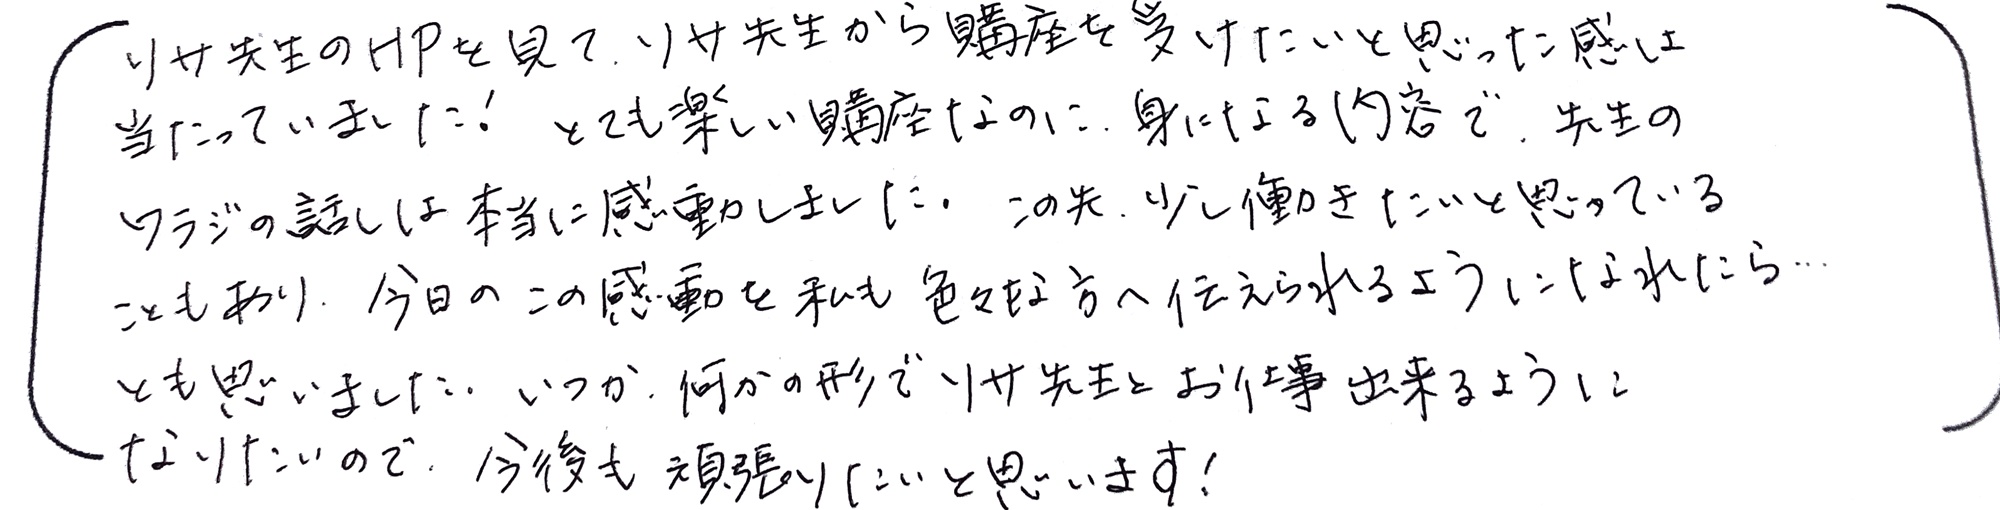 リサ先生のHPを見て、リサ先生から購座を受けたいと思った感は
当たっていました！ とても楽しい購座なのに、身になる内容で、先生の
ワラジの話しは本当に感動しました。 この先、少し働きたいと思っている
こともあり、今日のこの感動を私も色々な方へ伝えられるようになれたら…
とも思いました。いつか、何かの形でリサ先生とお仕事出来るように
なりたいので、今後も頑張りたいと思います！